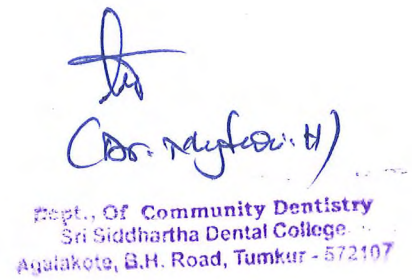 (Dr. H)
Dept., Of Community Dentistry
Sri Siddhartha Dental College
Agalakote, B.H. Road, Tumkur - 572107